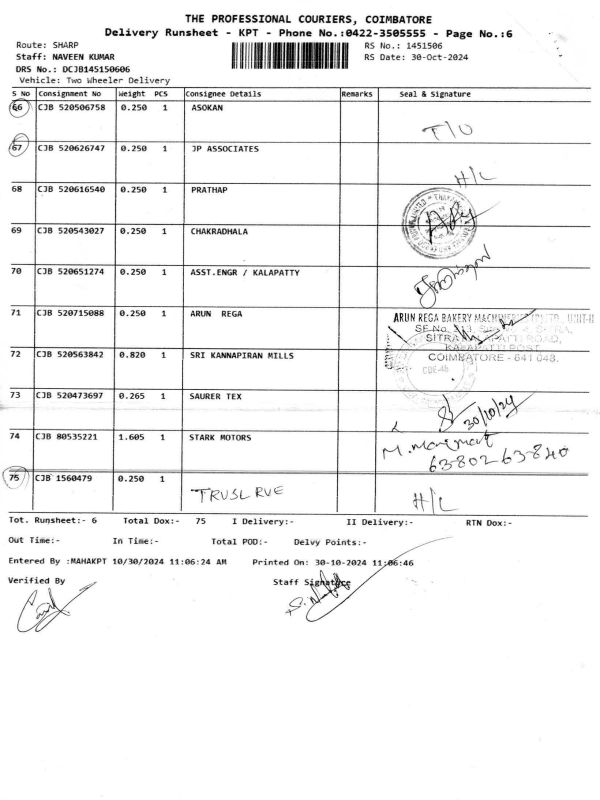 THE PROFESSIONAL COURIERS, COIMBATORE
Delivery Runsheet - KPT - Phone No.:0422-3505555 - Page No.:6
Route: SHARP
RS No.: 1451506
Staff: NAVEEN KUMAR
RS Date: 30-Oct-2024
DRS No.: DCJB145150606
Vehicle: Two Wheeler Delivery
S No Consignment No Weight PCS Consignee Details Remarks Seal & Signature
66 CJB 520506758 0.250 1 ASOKAN
T/O
67 CJB 520626747 0.250 1 JP ASSOCIATES
H/L
68 CJB 520616540 0.250 1 PRATHAP
69 CJB 520543027 0.250 1 CHAKRADHALA
70 CJB 520651274 0.250 1 ASST.ENGR / KALAPATTY
71 CJB 520715088 0.250 1 ARUN REGA
ARUN REGA BAKERY MACHINERIES (P) LTD., UNIT-II
SITRA KALAPATTI ROAD,
KALAPATTI POST
COIMBATORE - 641 048.
72 CJB 520563842 0.820 1 SRI KANNAPIRAN MILLS
CDE-48
73 CJB 520473697 0.265 1 SAURER TEX
30/10/24
74 CJB 80535221 1.605 1 STARK MOTORS
63802 63840
75 CJB 1560479 0.250 1
TRUSL RVE
H/L
Tot. Runsheet:- 6 Total Dox:- 75 I Delivery:- II Delivery:- RTN Dox:-
Out Time:- In Time:- Total POD:- Delvy Points:-
Entered By :MAHAKPT 10/30/2024 11:06:24 AM Printed On: 30-10-2024 11:06:46
Verified By Staff Signature